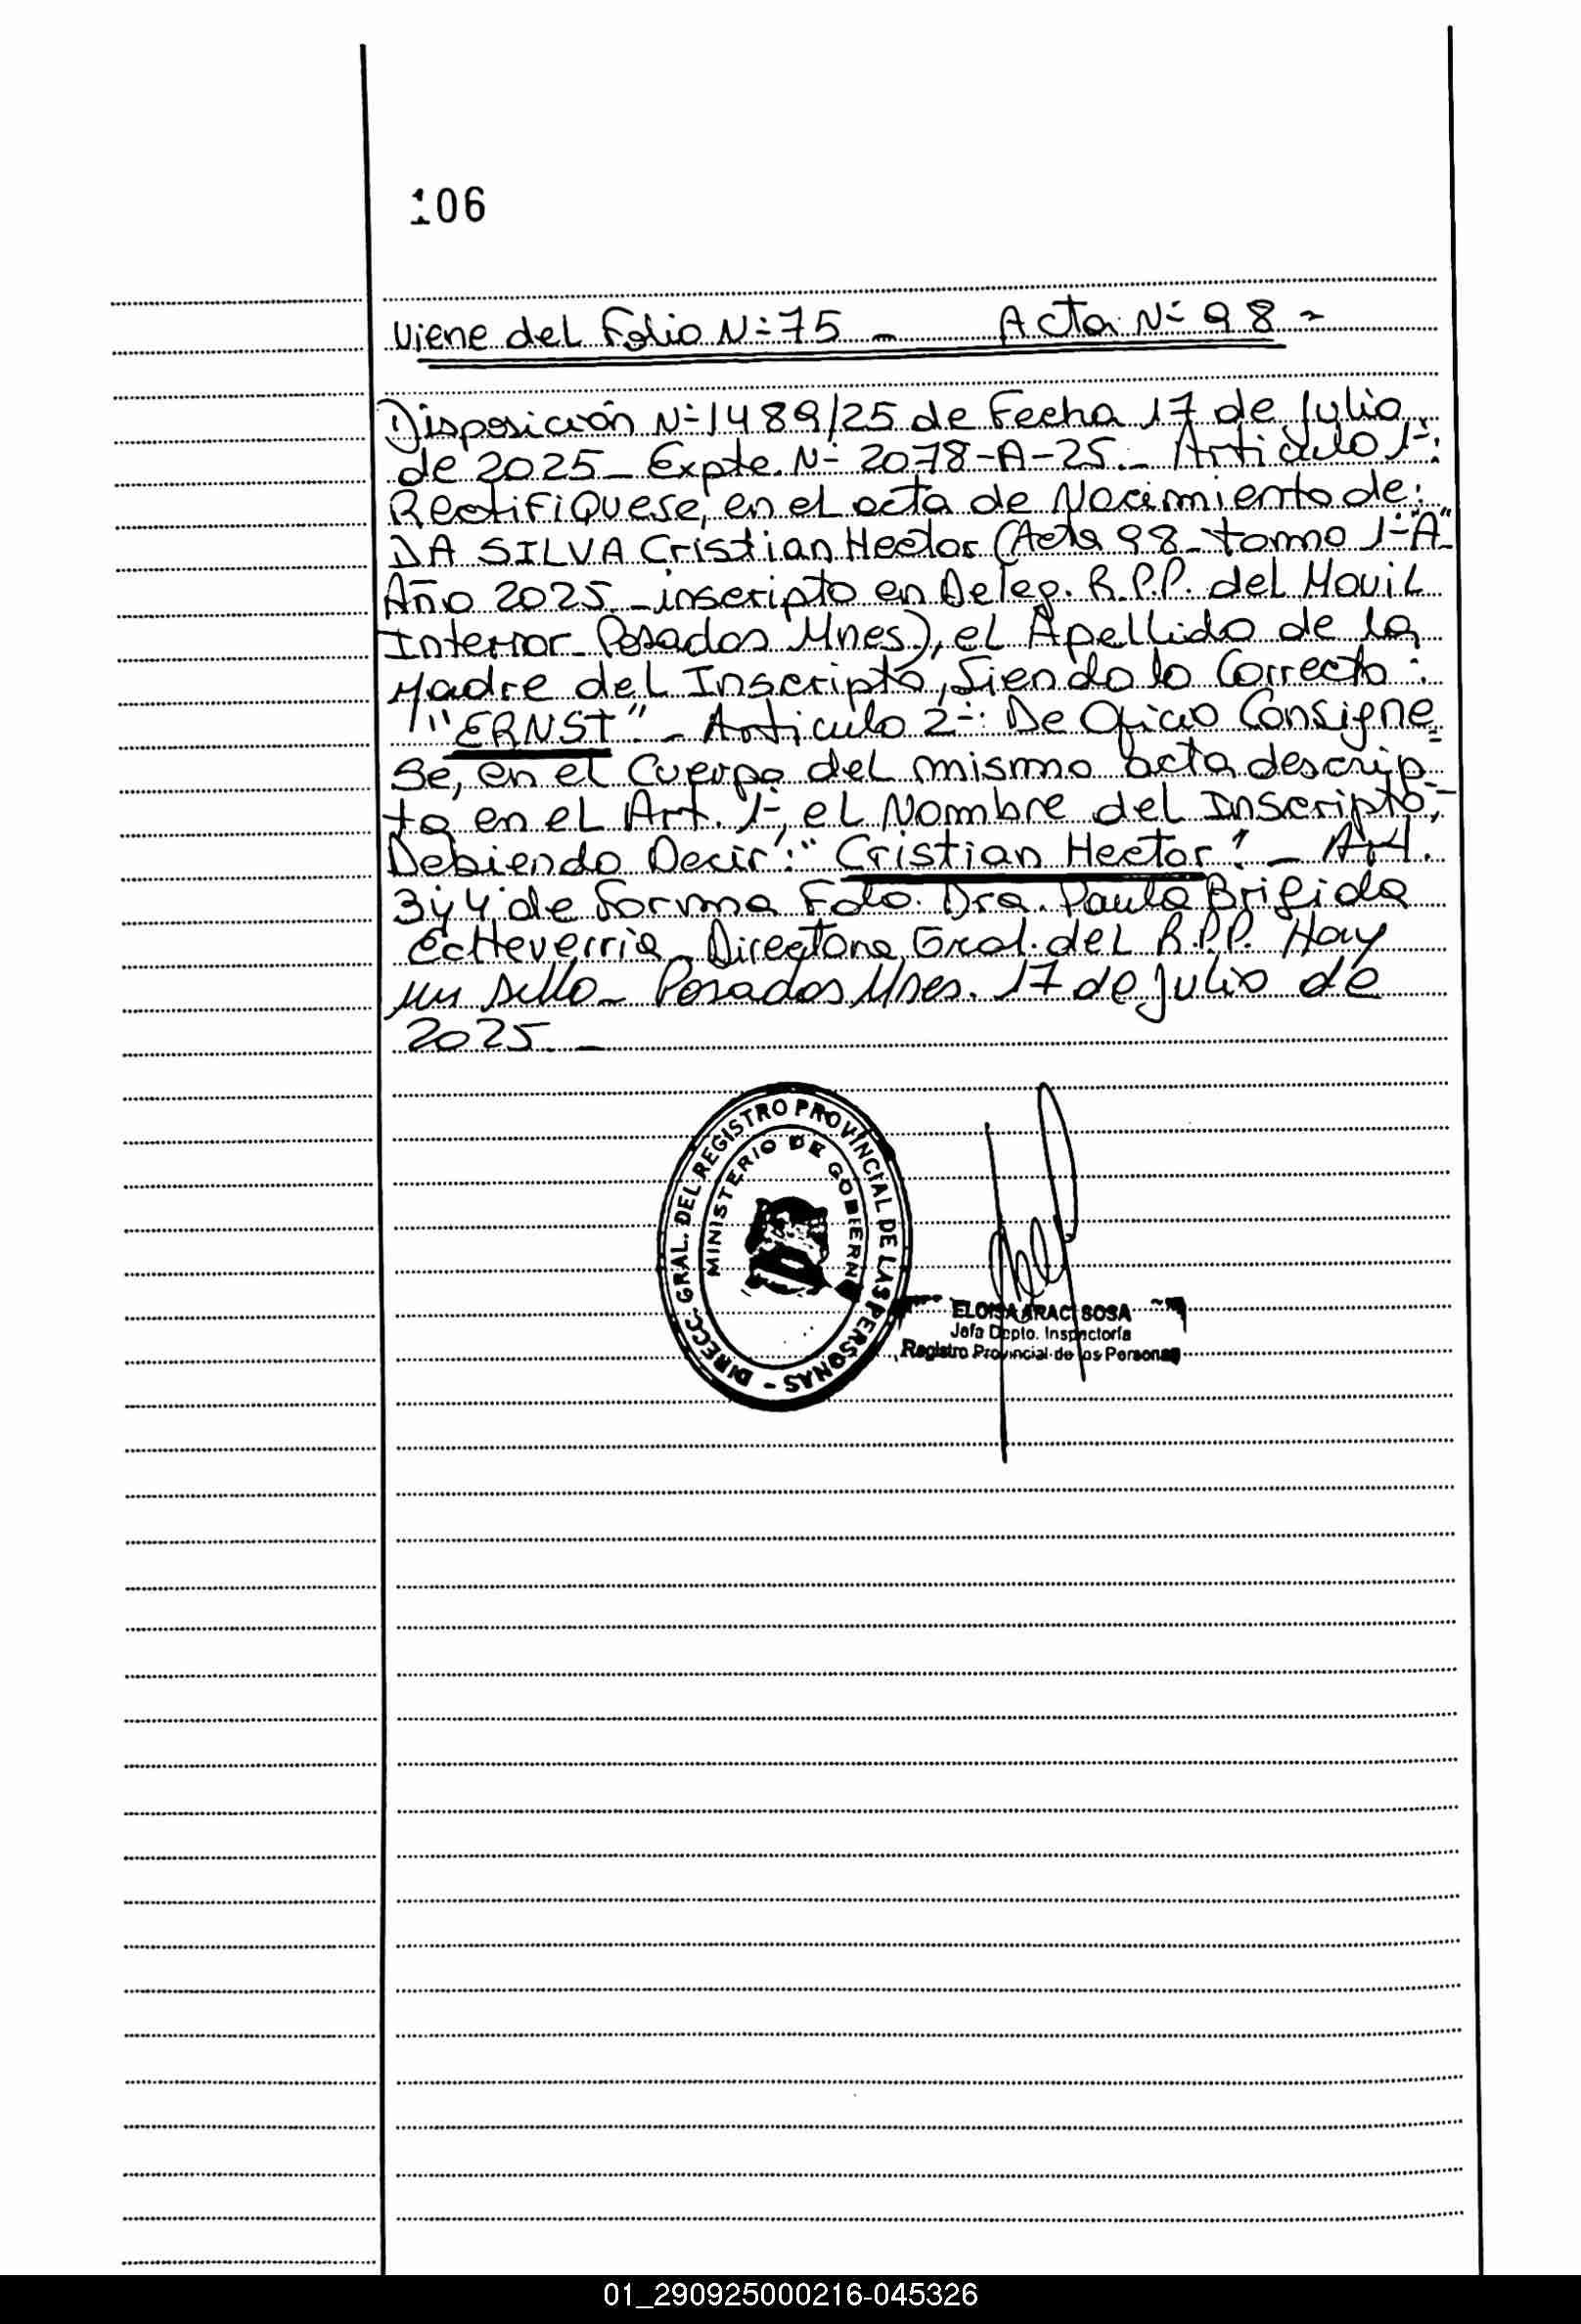 106
Viene del Folio N-75 - Acta N- 98 -
Disposición N-1489/25 de Fecha 17 de Julio
de 2025_ Expte. N- 2078-A-25._ Articulo 1-:
Rectifiquese, en el acta de Nacimiento de:
DA SILVA Cristian Hector (Acta 98_ tomo 1-"A"
Año 2025._ inscripto en Deleg. R.P.P. del Movil
Interior_ Posadas Mnes), el Apellido de la
Madre del Inscripto, Siendo lo Correcto:
"ERNST"._ Articulo 2-: De Oficio Consigne=
Se, en el Cuerpo del mismo acta descrip-
ta en el Art. 1-, el Nombre del Inscripto,
Debiendo Decir: "Cristian Hector"._ Art.
3 y 4 de forma Fdo. Dra. Paula Brigida
Echeverria_ Directora Gral. del R.P.P. Hay
un sello_ Posadas Mnes. 17 de Julio de
2025._
DIRECC. GRAL. DEL REGISTRO PROVINCIAL DE LAS PERSONAS -
MINISTERIO DE GOBIERNO
ELOISA ARACI SOSA
Jefa Dpto. Inspectoría
Registro Provincial de las Personas
01_290925000216-045326